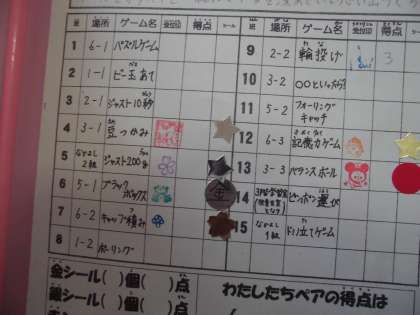 組 場所 ゲーム名 受付印 得点 シール
1 6-1 パズルゲーム
2 1-1 ビー玉あて
3 2-1 ジャスト10秒
4 3-1 豆つかみ
5 なかよし2組 ジャスト200g
6 5-1 ブラックボックス 金
7 6-2 キャップ積み
8 1-2 ボーリング
組 場所 ゲーム名 受付印 得点 シール
9 2-2 輪投げ 3
10 3-2
11 5-2 フォーリングキャッチ
12 6-3 記憶力ゲーム
13 3-3 バランスボール
14 ピンポン運び
15 なかよし1組 ドリ立てゲーム
金シール( )個( )点
銀シール( )個( )点
わたしたちペアの得点は